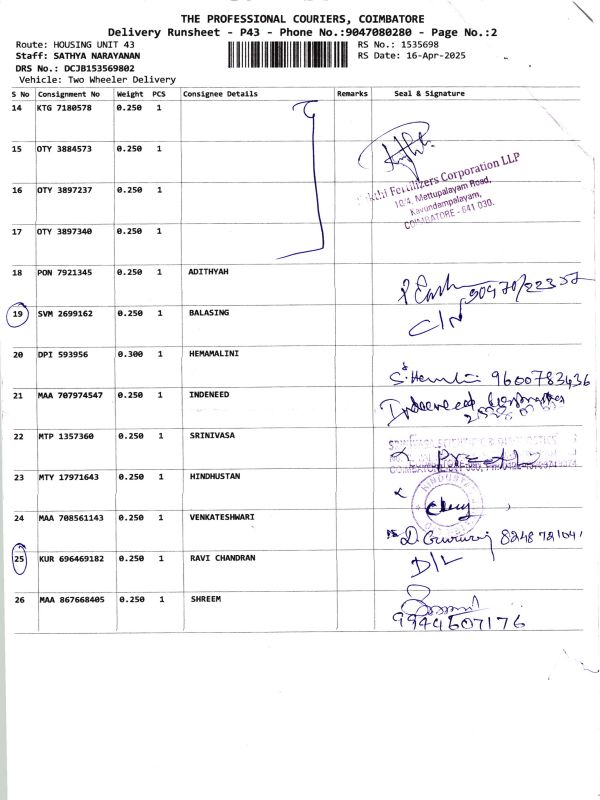 THE PROFESSIONAL COURIERS, COIMBATORE
Delivery Runsheet - P43 - Phone No.:9047080280 - Page No.:2
Route: HOUSING UNIT 43 RS No.: 1535698
Staff: SATHYA NARAYANAN RS Date: 16-Apr-2025
DRS No.: DCJB153569802
Vehicle: Two Wheeler Delivery
S No Consignment No Weight PCS Consignee Details Remarks Seal & Signature
14 KTG 7180578 0.250 1
15 OTY 3884573 0.250 1
Fertilizers Corporation LLP
10/4, Mettupalayam Road,
Kavundampalayam,
COIMBATORE - 641 030.
16 OTY 3897237 0.250 1
17 OTY 3897340 0.250 1
18 PON 7921345 0.250 1 ADITHYAH
19 SVM 2699162 0.250 1 BALASING
C/N
20 DPI 593956 0.300 1 HEMAMALINI
9600783436
21 MAA 707974547 0.250 1 INDENEED
Indeneed
22 MTP 1357360 0.250 1 SRINIVASA
23 MTY 17971643 0.250 1 HINDHUSTAN
24 MAA 708561143 0.250 1 VENKATESHWARI
8248721041
25 KUR 696469182 0.250 1 RAVI CHANDRAN
D/L
26 MAA 867668405 0.250 1 SHREEM
9944607176